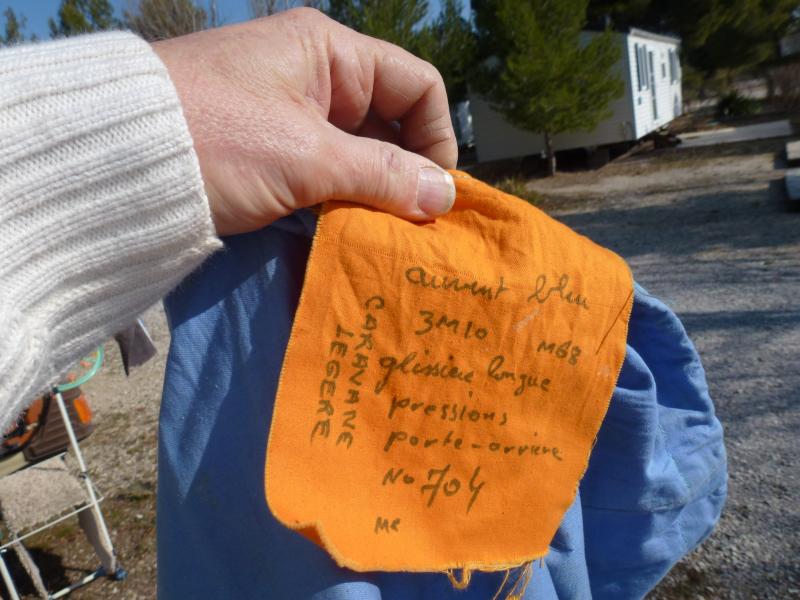 auvent bleu
3M10 M68
glissière longue
pressions
porte-arrière
No 704
Me
CARAVANE
LEGERE